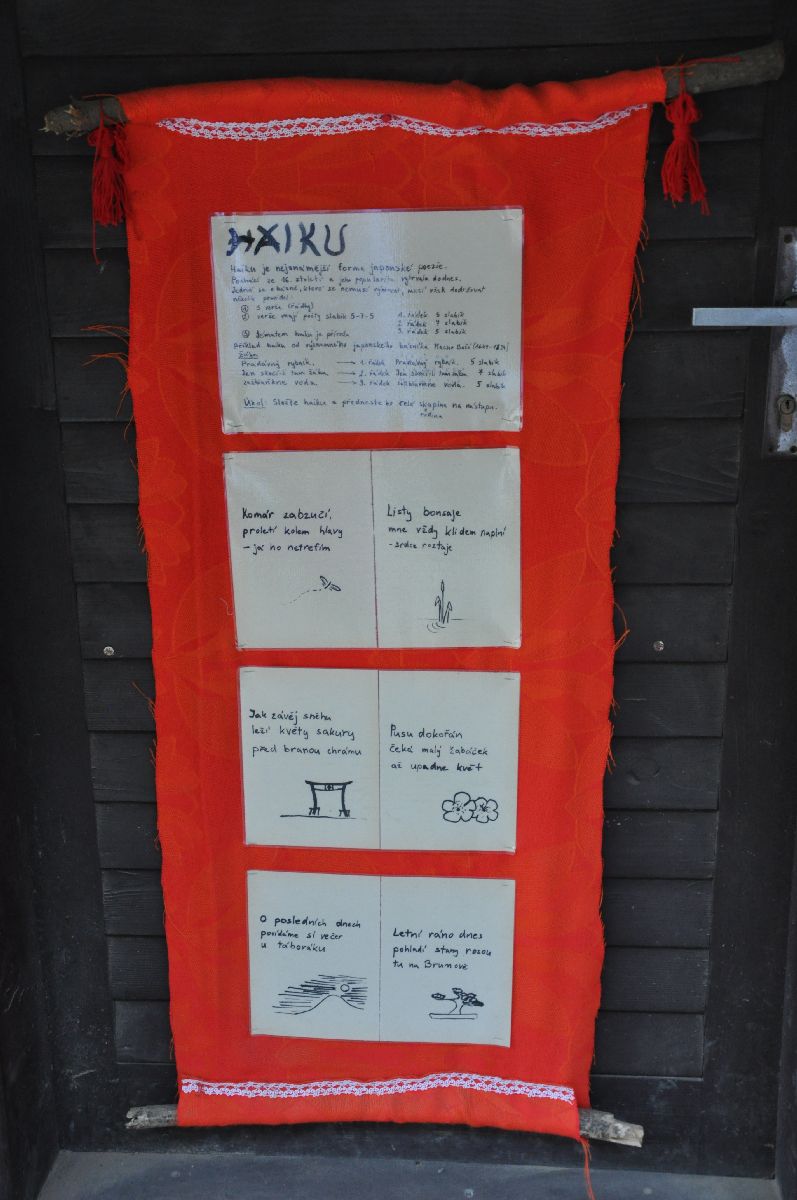 HAIKU
Haiku je nejznámější forma japonské poezie.
Pochází ze 16. století a jeho popularita vytrvala dodnes.
Jedná se o básně, které se nemusí rýmovat, musí však dodržovat
několik pravidel:
① 3 verše (řádky)
② verše mají počty slabik 5-7-5
1. řádek 5 slabik
2. řádek 7 slabik
3. řádek 5 slabik
③ tématem haiku je příroda
příklad haiku od významného japonského básníka Macuo Bašó
Žába
Pradávný rybník. → 1. řádek Pradávný rybník. 5 slabik
Jen skočí-li tam žába → 2. řádek Jen skočí-li tam žába 7 slabik
zašbluňkne voda. → 3. řádek voda. 5 slabik
Úkol: Složte haiku a předneste ho celá skupina na nástupu.
rodina
Komár zabzučí,
proletí kolem hlavy
- já ho netrefím
Listy bonsaje
mne vždy klidem naplní
- srdce roztaje
Jak závěj sněhu
leží květy sakury
před branou chrámu
Pusu dokořán
čeká malý žabáček
až upadne květ
O posledních dnech
povídáme si večer
u táboráku
Letní ráno dnes
pohladí stany rosou
tu na Brumově